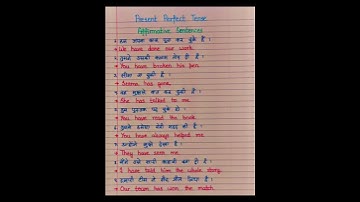 Present Perfect Tense
Affirmative Sentences
हम अपना काम पूरा कर चुके हैं।
We have done our work.
तुमने उसकी कलम तोड़ दी है।
You have broken his pen.
सीमा जा चुकी है।
Seema has gone.
वह मुझसे बात कर चुकी है।
She has talked to me.
तुम पुस्तक पढ़ चुके हो।
You have read the book.
तुमने हमेशा मेरी मदद की है।
You have always helped me.
उन्होंने मुझे देखा है।
They have seen me.
मैंने उसे सारी कहानी बता दी है।
I have told him the whole story.
हमारी टीम ने मैच जीत लिया है।
Our team has won the match.